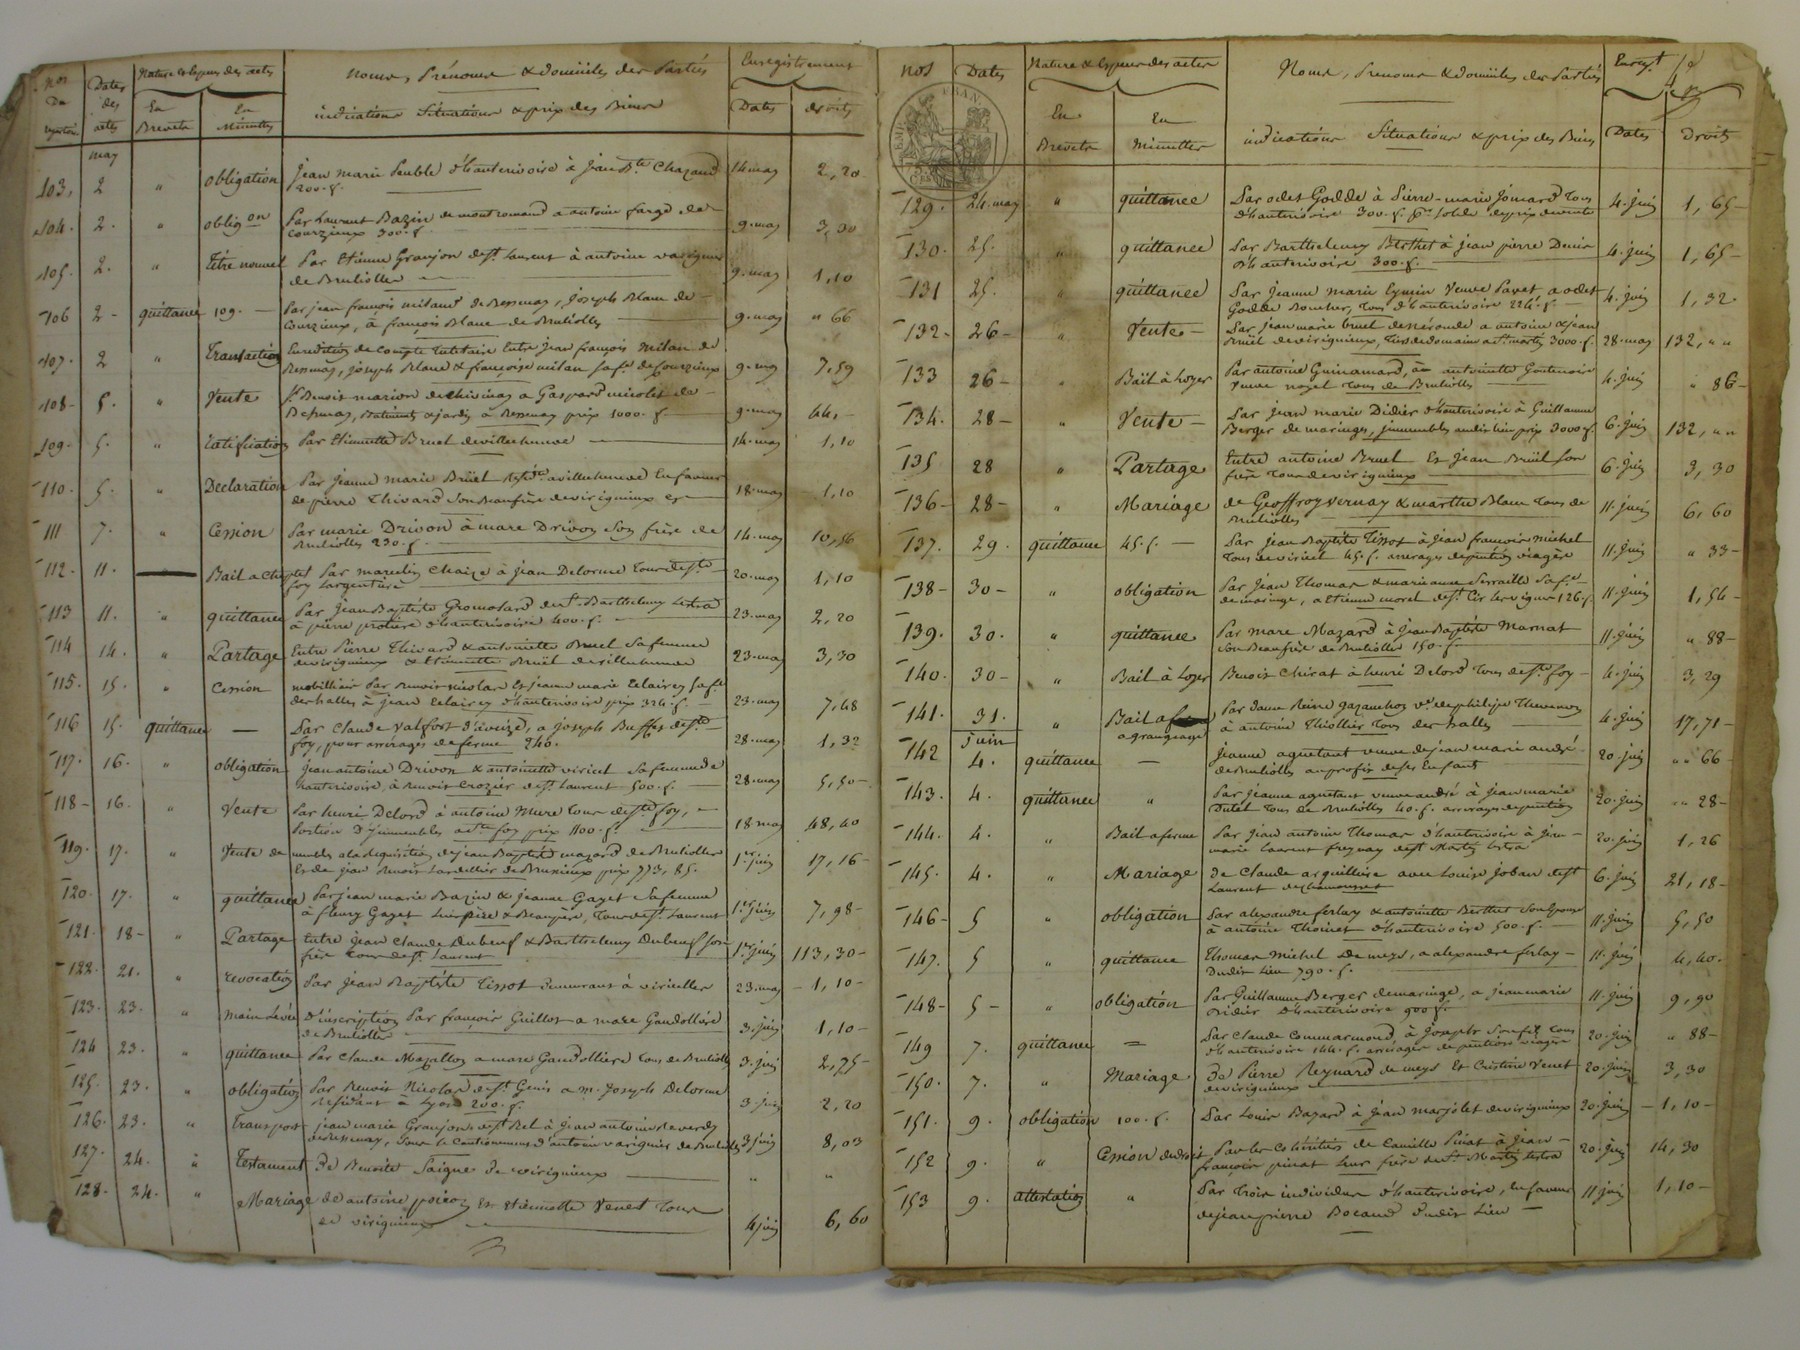 Nos Du repertoire
Dates des actes
Nature & espece des actes
En Brevets
En Minuttes
Noms, Prénoms & domiciles des Parties
indications Situations & prix des Biens
Enregistrement
Dates
droits
may
103, 2 " obligation jean marie d'hauterivoire à jean Bte Chazaud 14 may 2,20
200. f.
104. 2. " oblig.on Par Laurent Bazin de montromand a antoine farge de 9. may 3,30
Courzieux 300. f
105. 2. " Titre nouvel Par Etienne Granjon de St. Laurent à antoine varignier 9. may 1,10
de Brulioles
106 2 - quittance 109. Par jean françois milan de Bessenay, joseph Blanc de 9. may " 66
Courzieux, à françois Blanc de Bruliolles
107. 2 " Transaction En reddition de Compte tutelaire Entre jean françois milan de 9. may 7,59
Bessenay, joseph Blanc & françoise milan sa fe. de Courzieux
108 - 5. " Vente St. Benoit marion de a Gaspard nicolet de 9. may 44, -
Bessenay, Batiments & jardin à Bessenay prix 1000. f.
109. 5. " ratification Par Etiennette Bruel de villecheneve 14. may 1,10
110. 5. " Declaration Par jeanne marie Brüel a villecheneve En faveur 18. may 1,10
de pierre Thivard son Beaufrère de virigneux
111 7. " Cession Par marie Drivon à marc Drivon son frère de 14. may 10,56
Bruliolles 230. f.
112. 11. Bail a cheptel Par marcelin Chaize à jean Delorme tous de Ste 20. may 1,10
foy Largentière
113 11. " quittance Par jean Baptiste Gromolard de St. Barthelemy Lestra 23. may 2,20
à pierre protière d'hauterivoire 400. f.
114 14. " Partage Entre Pierre Thivard & antoinette Bruel sa femme 23. may 3,30
de virigneux & Etiennette Brüel de villecheneve
115. 15. " Cession mobilliair Par Benoit nicolas Et jeanne marie Eclairey sa fe. 23. may 7,48
des halles à jean Eclairey d'hauterivoire prix 324. f.
116 15. quittance Par Claude Valfort d'iveize, a joseph Buffet de Ste 28. may 1,32
foy, pour arrerages de ferme 240.
117. 16. " obligation jean antoine Drivon & antoinette viricel sa femme de 28. may 5,50 -
hauterivoire, à Benoit Crozier de St. Laurent 500. f.
118 - 16. " Vente Par henri Delord à antoine Mure tous de Ste foy, 18 may 48,40
Portion D'jmmeubles a Ste foy prix 1100. f.
119. 17. " Vente de meubles a la requisition de jean Baptiste mazard de Bruliolles 1er juin 17,16 -
Et de jean Benoit de Brussieux prix 773, 85.
120. 17. " quittance Par jean marie Bazin & jeanne Gayet sa femme 1er juin 7,98 -
à fleury Gayet Leur père & Beaupère, Tous de St. Laurent
121. 18 - " Partage Entre jean Claude Dubeuf & Barthelemy Dubeuf son 1er juin 113,30 -
frère tous de St. Laurent
122. 21. " revocation Par jean Baptiste Tissot demeurant à viricelles 23. may 1,10 -
123. 23. " main Levée d'inscription Par françois Guillot a marc Gaudollière 3. juin 1,10 -
de Bruliolles
124 23. " quittance Par Claude Mazallon a marc Gaudollière tous de Bruliolles 3. juin 2,75 -
125. 23. " obligation Par Benoit Nicolas de St. Genis a m. joseph Delorme 3. juin 2,20
résidant à Lyon 200. f.
126. 23. " Transport jean marie Granjon de St. Bel à jean antoine
de Bessenay, sous le Cautionnement d'antoine varignier de Bruliolles 3 juin 8,03
127. 24. " Testament De Benoite Saigne De virigneux " "
128. 24. " Mariage de antoine poizon Et Etiennette Venet Tous
de virigneux 4 juin 6,60
Nos
Dates
Nature & Especes des actes
En Brevets
En Minuttes
Noms, Prenoms & domiciles des Parties
indications Situations & prix des Biens
Enregt.
Dates
Droits
129. 24. may " quittance Par odet Godde à Pierre-marie jomard Tous 4. juin 1,65 -
d'hauterivoire 300. f. pr. solde de prix de vente
130. 25. " quittance Par Barthelemy Berthet à jean pierre Denis 4. juin 1,65 -
D'hauterivoire 300. f.
131 25. " quittance Par jeanne marie Eymin Veuve Pavet a odet 4. juin 1,32.
Godde Boucher, Tous d'hauterivoire 224. f.
132 - 26 - " Vente - Par jean marie bruel de néronde a antoine & jean
Brüel de virigneux, 3000. f. 28. may 132, " "
133 26 - " Bail à Loyer Par antoine Guinamard, à antoinette 4. juin " 86 -
veuve noyel tous de Bruliolles
134. 28 - " Vente - Par jean marie Didier d'hauterivoire à Guillaume
Berger de maringes, jmmeubles audit lieu prix 3000 f. 6. juin 132, " "
135 28 " Partage Entre antoine Bruel Et jean Brüel son 6. juin 3,30
frère tous de virigneux
136 - 28 - " Mariage de Geoffroy vernay & marthe Blanc tous de 11. juin 6,60
Bruliolles
137. 29. quittance 45. f. Par jean Baptiste Tissot à jean françois michel 11. juin " 33 -
Tous de viricel 45. f. arrerages de pension viagère
138 - 30 - " obligation Par jean Thomas & marianne sa fe.
de maringe, a Etienne morel de St. Cir Les vignes 126. f. 11. juin 1,54 -
139. 30. " quittance Par marc Mazard à jean Baptiste Marnat 11. juin " 88 -
son Beaufrère de Bruliolles 150. f.
140. 30 - " Bail à Loyer Benoit Chirat à henri Delord Tous de Ste foy - 4. juin 3,29
141. 31. " Bail a Par Dame Reine ve. de philipe Thevenon 4. juin 17,71 -
a grangeage à antoine Thollier tous des halles
juin
142 4. quittance jeanne aguetant veuve de jean marie andré 20. juin " " 66 -
de Bruliolles au profit de ses Enfants
143. 4. quittance " Par jeanne aguetant veuve andré à jean marie 20. juin " " 28 -
Dutel tous de Bruliolles 40. f. arrerages de pension
144. 4. " Bail a ferme Par jean antoine Thomas d'hauterivoire à jean 20. juin 1,26
marie Laurent freynay de St Martin Lestra
145. 4. " Mariage De Claude arquillière avec Louise joban de St 6. juin 21,18 -
Laurent de chamousset
146 - 5 " obligation Par alexandre ferlay & antoinette Berthet son Epouse 11. juin 5,50
à antoine Thoinet d'hauterivoire 500. f.
147. 5 " quittance Thomas Michel De meys, a alexandre ferlay - 11. juin 4,40.
Dudit Lieu 790. f.
148 - 5 - " obligation Par Guillaume Berger de maringe, a jean marie 11. juin 9,90
Didier d'hauterivoire 900 f.
149 7. quittance = Par Claude Commarmond, à joseph son fils Tous 20. juin " 88 -
d'hauterivoire 144. f. arrerages de pension viagère
150. 7. " Mariage De Pierre Reynard de meys Et Cristine Venet 20. juin 3,30
de virigneux
151. 9. obligation 100. f. Par Louis Bazard à jean marjolet de virigneux 20. juin 1,10 -
152 9. " Cession de droits Par les Cohéritiers de Camille Pinat à jean 20. juin 14,30
françois pinat Leur frère de St. Martin Lestra
153 9. attestation " Par Trois individus d'hauterivoire, En faveur 11 juin 1,10 -
de jean pierre Bocaud Dudit Lieu